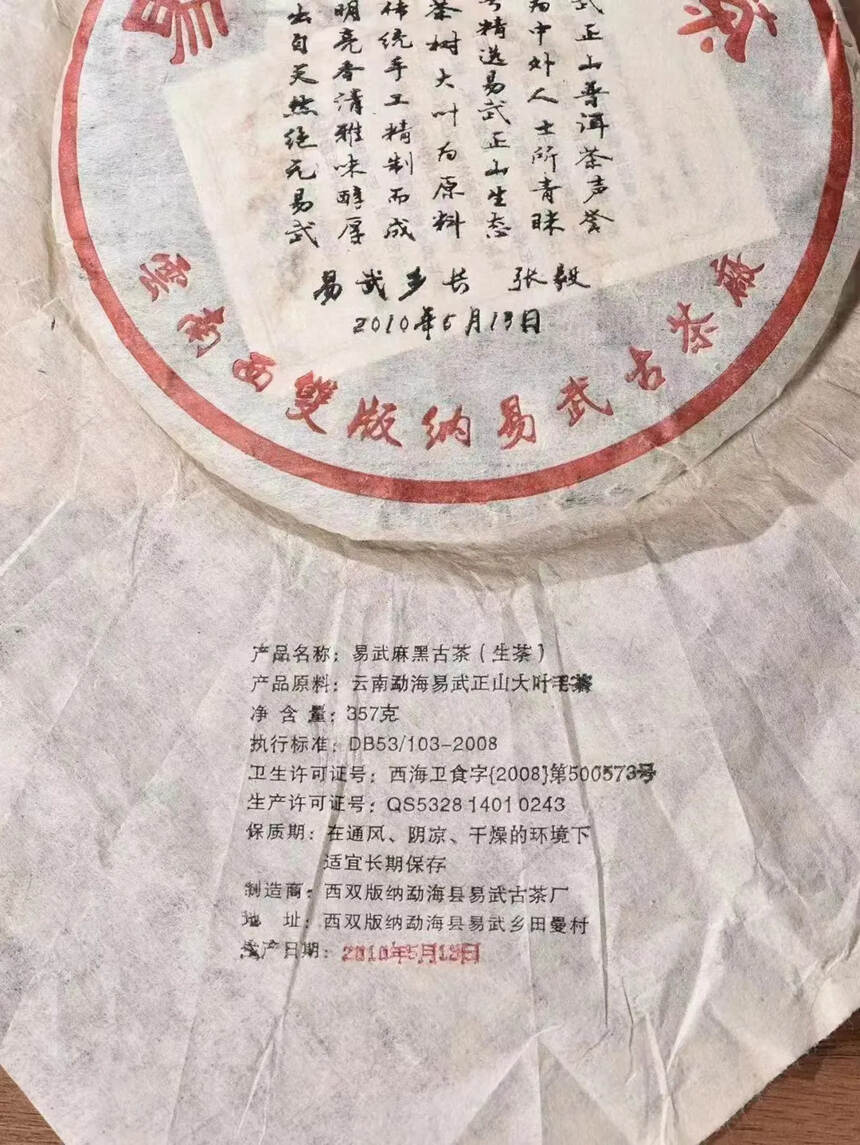 茶
武正山普洱茶声誉
为中外人士所青睐
号精选易武正山生态
茶树大叶为原料
传统手工精制而成
明亮香清雅味醇厚
出自天然绝无易武
易武乡长 张毅
2010年5月13日
雲南西雙版纳易武古茶廠
产品名称：易武麻黑古茶（生茶）
产品原料：云南勐海易武正山大叶毛茶
净 含 量：357克
执行标准：DB53/103-2008
卫生许可证号：西海卫食字{2008}第500573号
生产许可证号：QS5328 1401 0243
保质期：在通风、阴凉、干燥的环境下
适宜长期保存
制造商：西双版纳勐海县易武古茶厂
地 址：西双版纳勐海县易武乡田曼村
生产日期：2010年5月13日